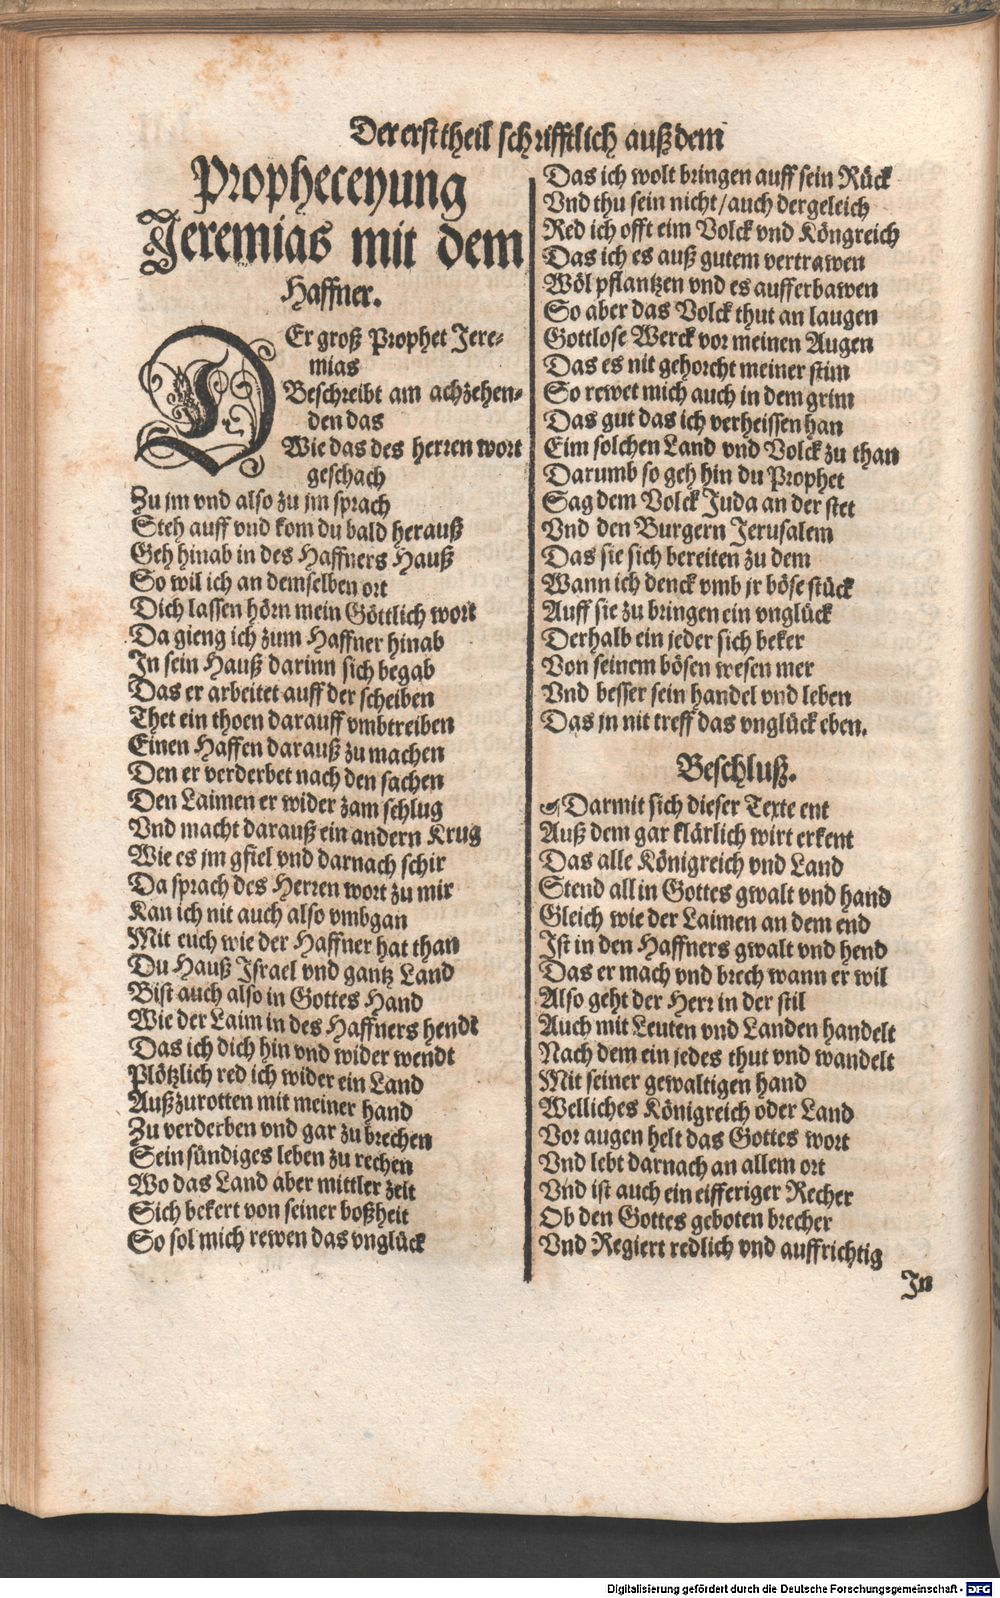 Der erst theil schrifftlich auß dem
Propheceyung
Jeremias mit dem
Haffner.
DEr groß Prophet Jere-
mias
Beschreibt am achzehen-
den das
Wie das des herren wort
geschach
Zu jm vnd also zu jm sprach
Steh auff vnd kom du bald herauß
Geh hinab in des Haffners Hauß
So wil ich an demselben ort
Dich lassen hörn mein Göttlich wort
Da gieng ich zum Haffner hinab
In sein Hauß darinn sich begab
Das er arbeitet auff der scheiben
Thet ein thoen darauff vmbtreiben
Einen Haffen darauß zu machen
Den er verderbet nach den sachen
Den Laimen er wider zam schlug
Vnd macht darauß ein andern Krug
Wie es jm gfiel vnd darnach schir
Da sprach des Herren wort zu mir
Kan ich nit auch also vmbgan
Mit euch wie der Haffner hat than
Du Hauß Israel vnd gantz Land
Bist auch also in Gottes Hand
Wie der Laim in des Haffners hendt
Das ich dich hin vnd wider wendt
Plötzlich red ich wider ein Land
Außzurotten mit meiner hand
Zu verderben vnd gar zu brechen
Sein sündiges leben zu rechen
Wo das Land aber mittler zeit
Sich bekert von seiner boßheit
So sol mich rewen das vnglück
Das ich wolt bringen auff sein Rück
Vnd thu sein nicht/auch dergeleich
Red ich offt eim Volck vnd Köngreich
Das ich es auß gutem vertrawen
Wöl pflantzen vnd es aufferbawen
So aber das Volck thut an laugen
Gottlose Werck vor meinen Augen
Das es nit gehorcht meiner stim
So rewet mich auch in dem grim
Das gut das ich verheissen han
Eim solchen Land vnd Volck zu than
Darumb so geh hin du Prophet
Sag dem Volck Juda an der stet
Vnd den Burgern Jerusalem
Das sie sich bereiten zu dem
Wann ich denck vmb jr böse stück
Auff sie zu bringen ein vnglück
Derhalb ein jeder sich beker
Von seinem bösen wesen mer
Vnd besser sein handel vnd leben
Das jn nit treff das vnglück eben.
Beschluß.
Darmit sich dieser Texte ent
Auß dem gar klärlich wirt erkent
Das alle Königreich vnd Land
Stend all in Gottes gwalt vnd hand
Gleich wie der Laimen an dem end
Ist in den Haffners gwalt vnd hend
Das er mach vnd brech wann er wil
Also geht der Herr in der stil
Auch mit Leuten vnd Landen handelt
Nach dem ein jedes thut vnd wandelt
Mit seiner gewaltigen hand
Welliches Königreich oder Land
Vor augen helt das Gottes wort
Vnd lebt darnach an allem ort
Vnd ist auch ein eifferiger Recher
Ob den Gottes geboten brecher
Vnd Regiert redlich vnd auffrichtig
In
Digitalisierung gefördert durch die Deutsche Forschungsgemeinschaft - DFG